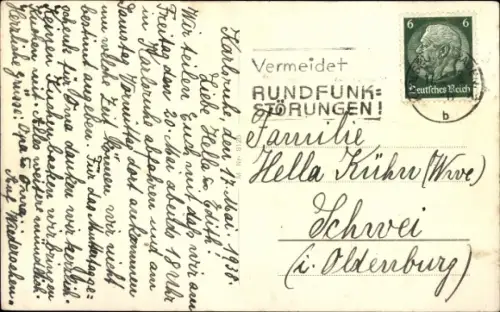 Karlsruhe, den 17. Mai. 1938.
Liebe Hella & Edith!
Wir teilen Euch mit daß wir am
Freitag den 20. Mai abends 18 Uhr
in Karlsruhe abfahren und am
Samstag Vormittag dort ankommen
um welche Zeit können wir nicht
bestimt angeben. Für das Muttertage=
schenk für Oma danken wir herzlich.
Keinen Kuchen backen wir bringen
Kuchen mit. Alles weiter mündlich.
Herzliche Grüsse. Opa & Oma.
Auf Wiedersehen.
Vermeidet
RUNDFUNK=
STÖRUNGEN!
6 6
Deutsches Reich
b
Familie
Hella Kühn (Wwe)
Schwei
(i. Oldenburg)